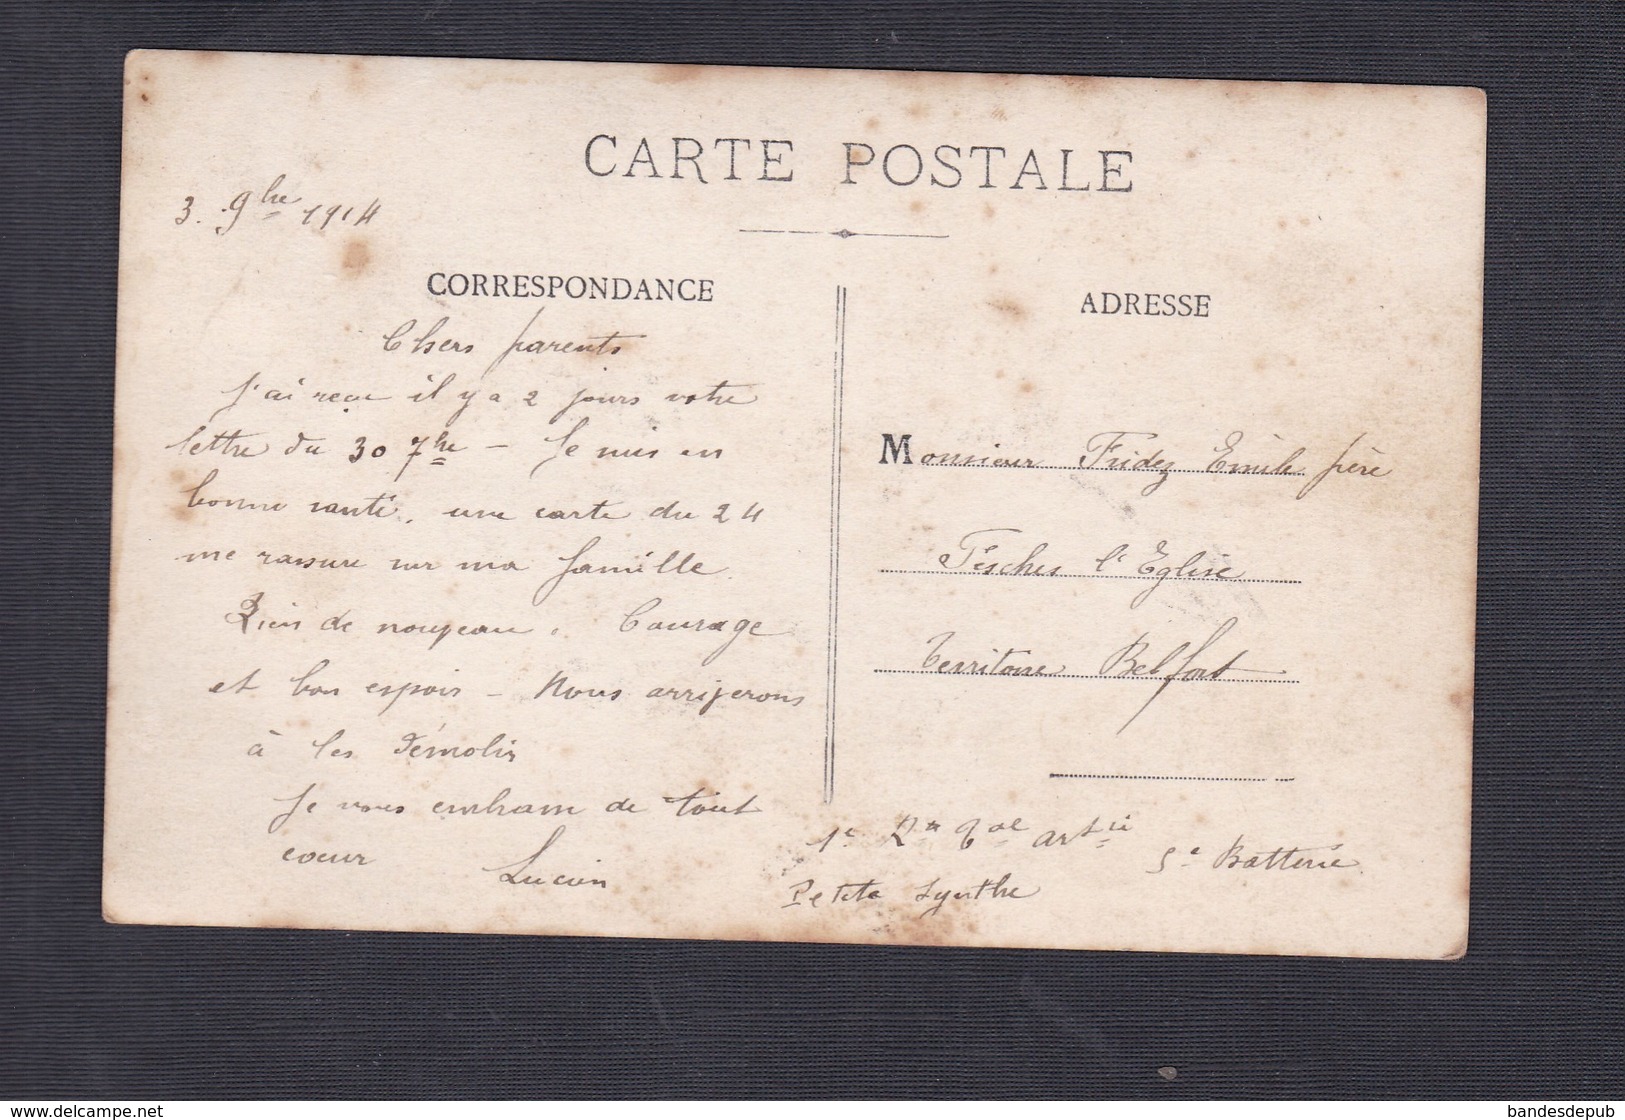 CARTE POSTALE
3. 9bre 1914
CORRESPONDANCE
Chers parents
J'ai reçu il y a 2 jours votre
lettre du 30 7bre – Je suis en
bonne santé, une carte du 24
me rassure sur ma famille.
Rien de nouveau. Courage
et bon espoir – Nous arriverons
à les démolir
Je vous embrasse de tout
coeur Lucien
ADRESSE
Monsieur Fridez Emile père
Fêsches l'Eglise
Territoire Belfort
1e artie 5e Batterie
Petite Synthe
www.delcampe.net
bandesdepub